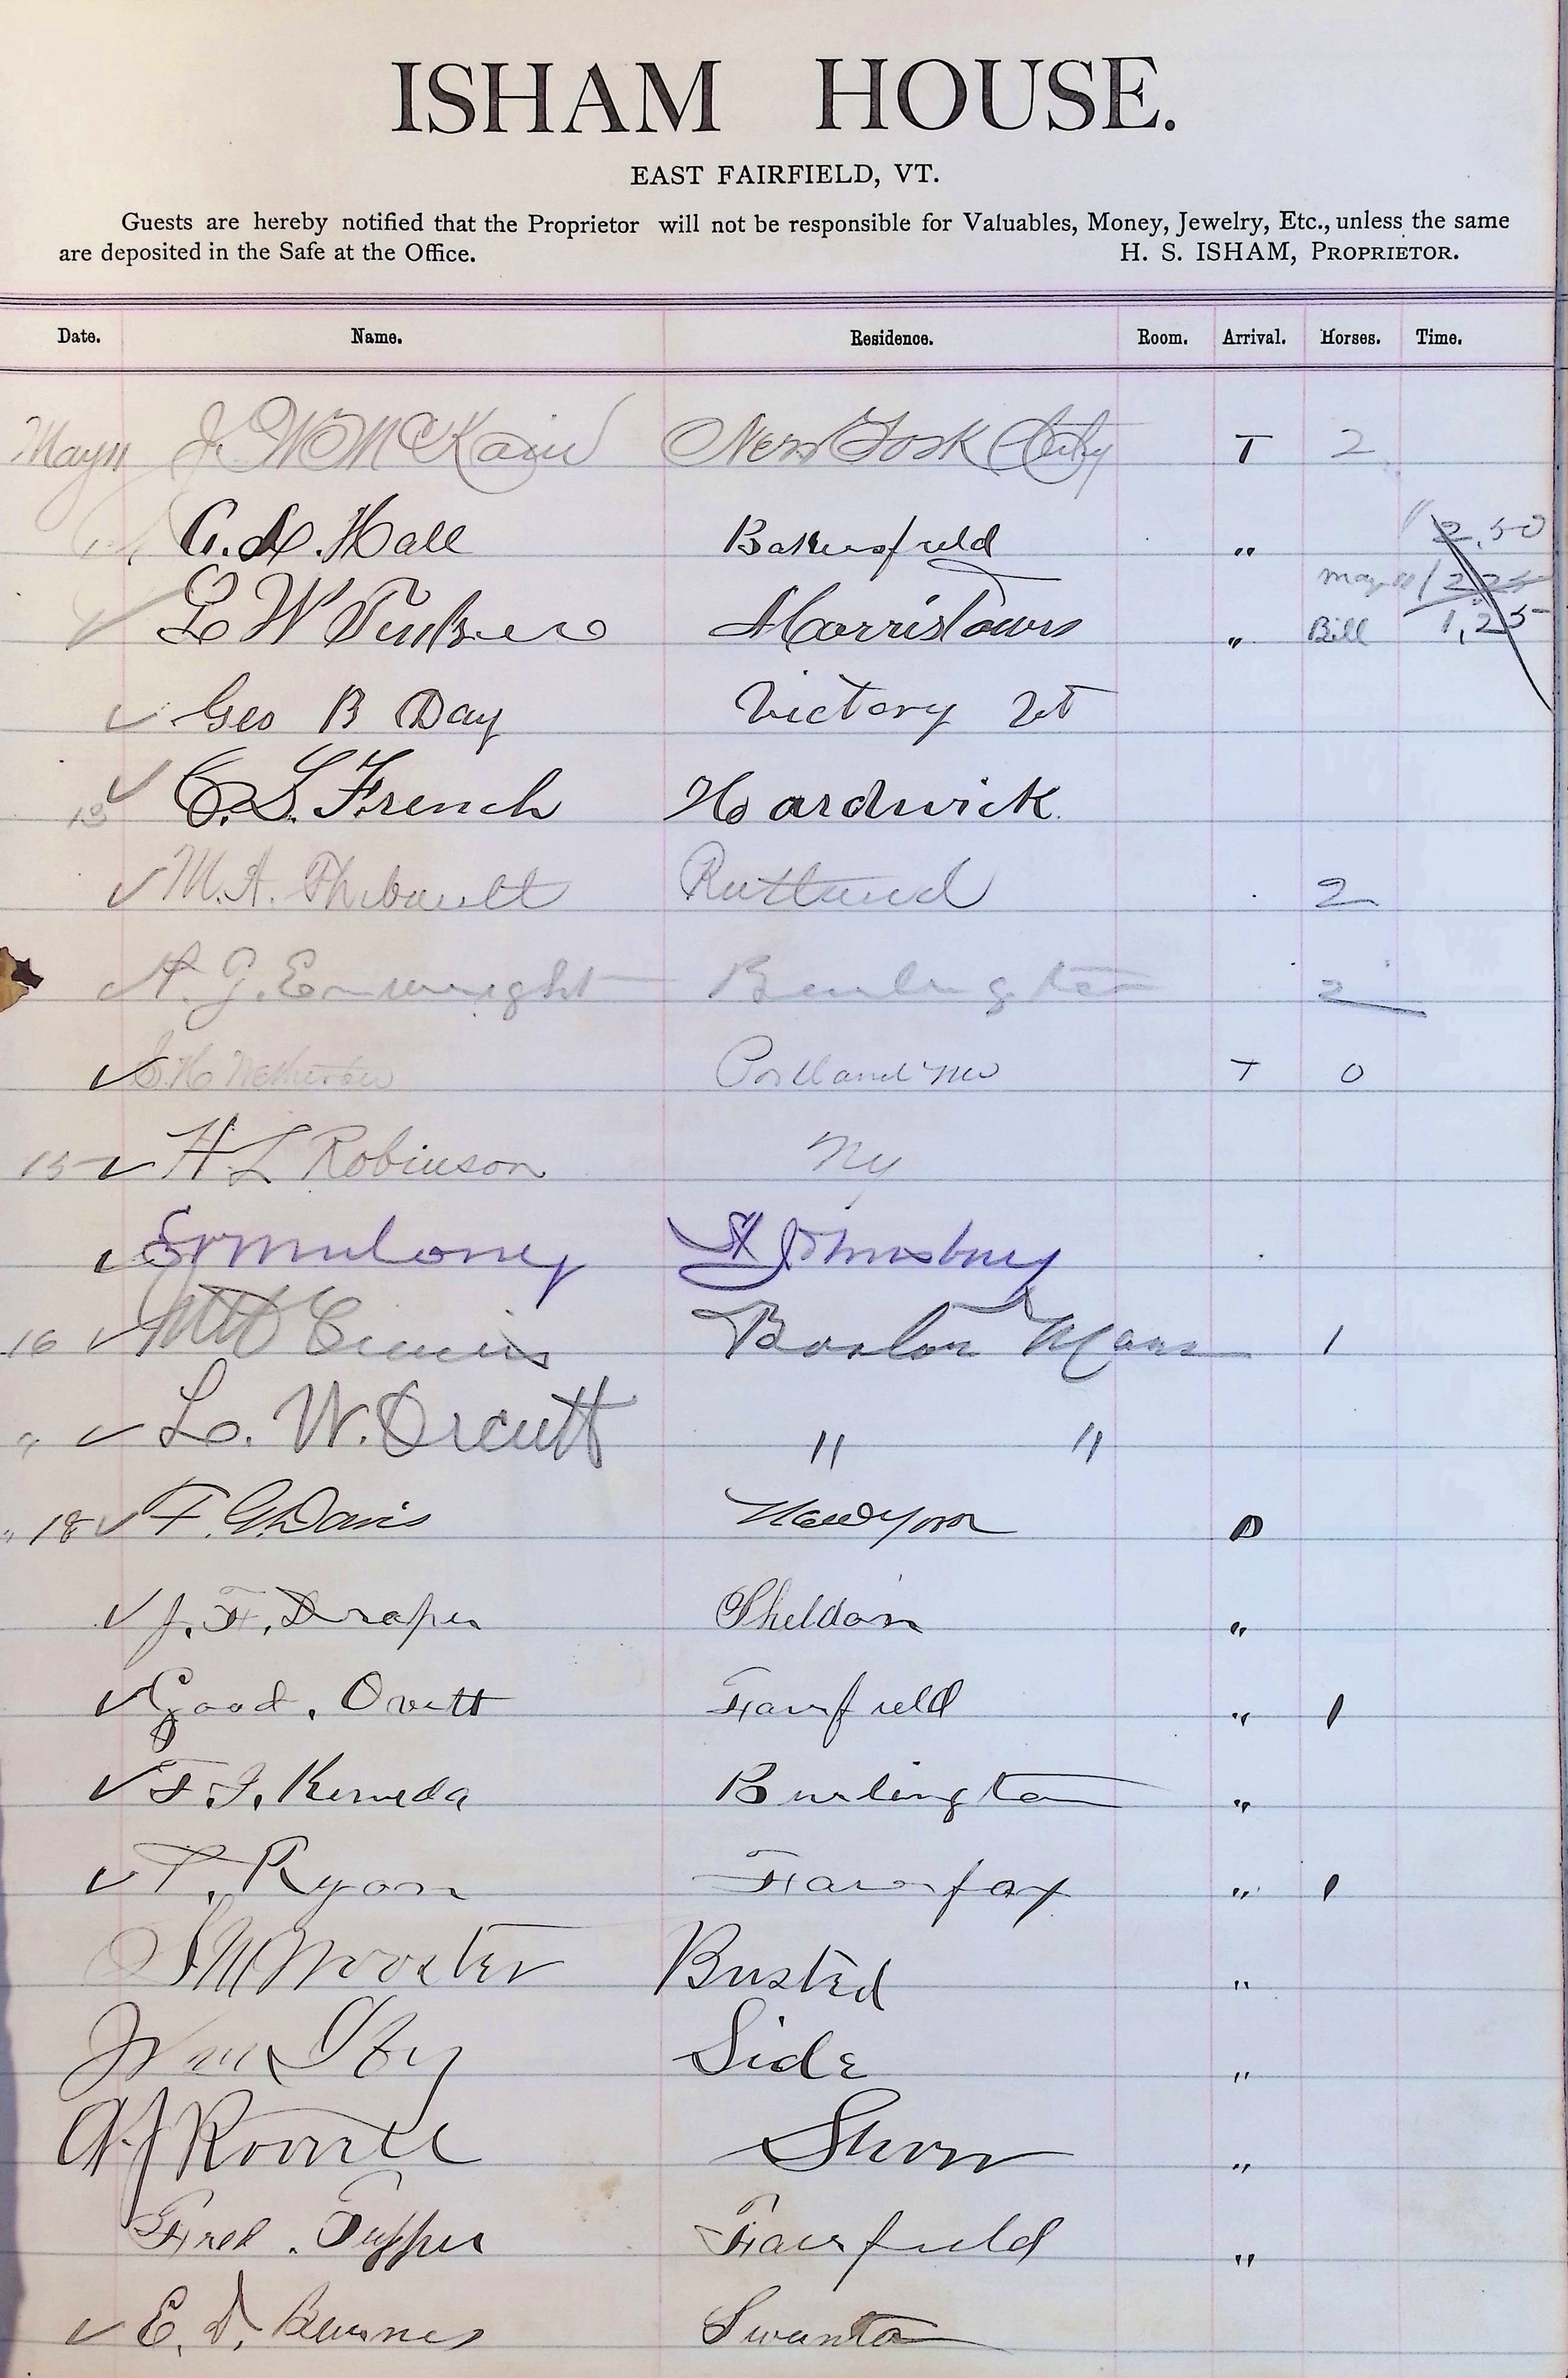 ISHAM HOUSE.
EAST FAIRFIELD, VT.
Guests are hereby notified that the Proprietor will not be responsible for Valuables, Money, Jewelry, Etc., unless the same
are deposited in the Safe at the Office. H. S. ISHAM, PROPRIETOR.
Date. Name. Residence. Room. Arrival. Horses. Time.
May 11 J. W. McKain New York City T 2
Hall Bakersfield " 2.50
May 11 2 25
L W Morristown " Bill 1,25
✓ Geo B Day Victory Vt
13 ✓ C. S. French Hardwick.
✓ M. A. Thibault Rutland 2
✓ A. J. Enwright Burlington 2
✓ Portland Me T 0
15 ✓ H. L Robinson Ny
✓ muloney St Johnsbury
16 ✓ Boston Mass 1
" ✓ L. W. Orcutt " "
" 18 ✓ F. G. Davis New York
✓ J. F. Draper Sheldon "
✓ Good. Ovitt Fairfield " 1
✓ F. J. Keneda Burlington "
✓ T. Ryan Fairfax " 1
Wooster Busted "
Side "
A J Rowell Show "
Fred. Tupper Fairfield "
✓ E. D. Swanton